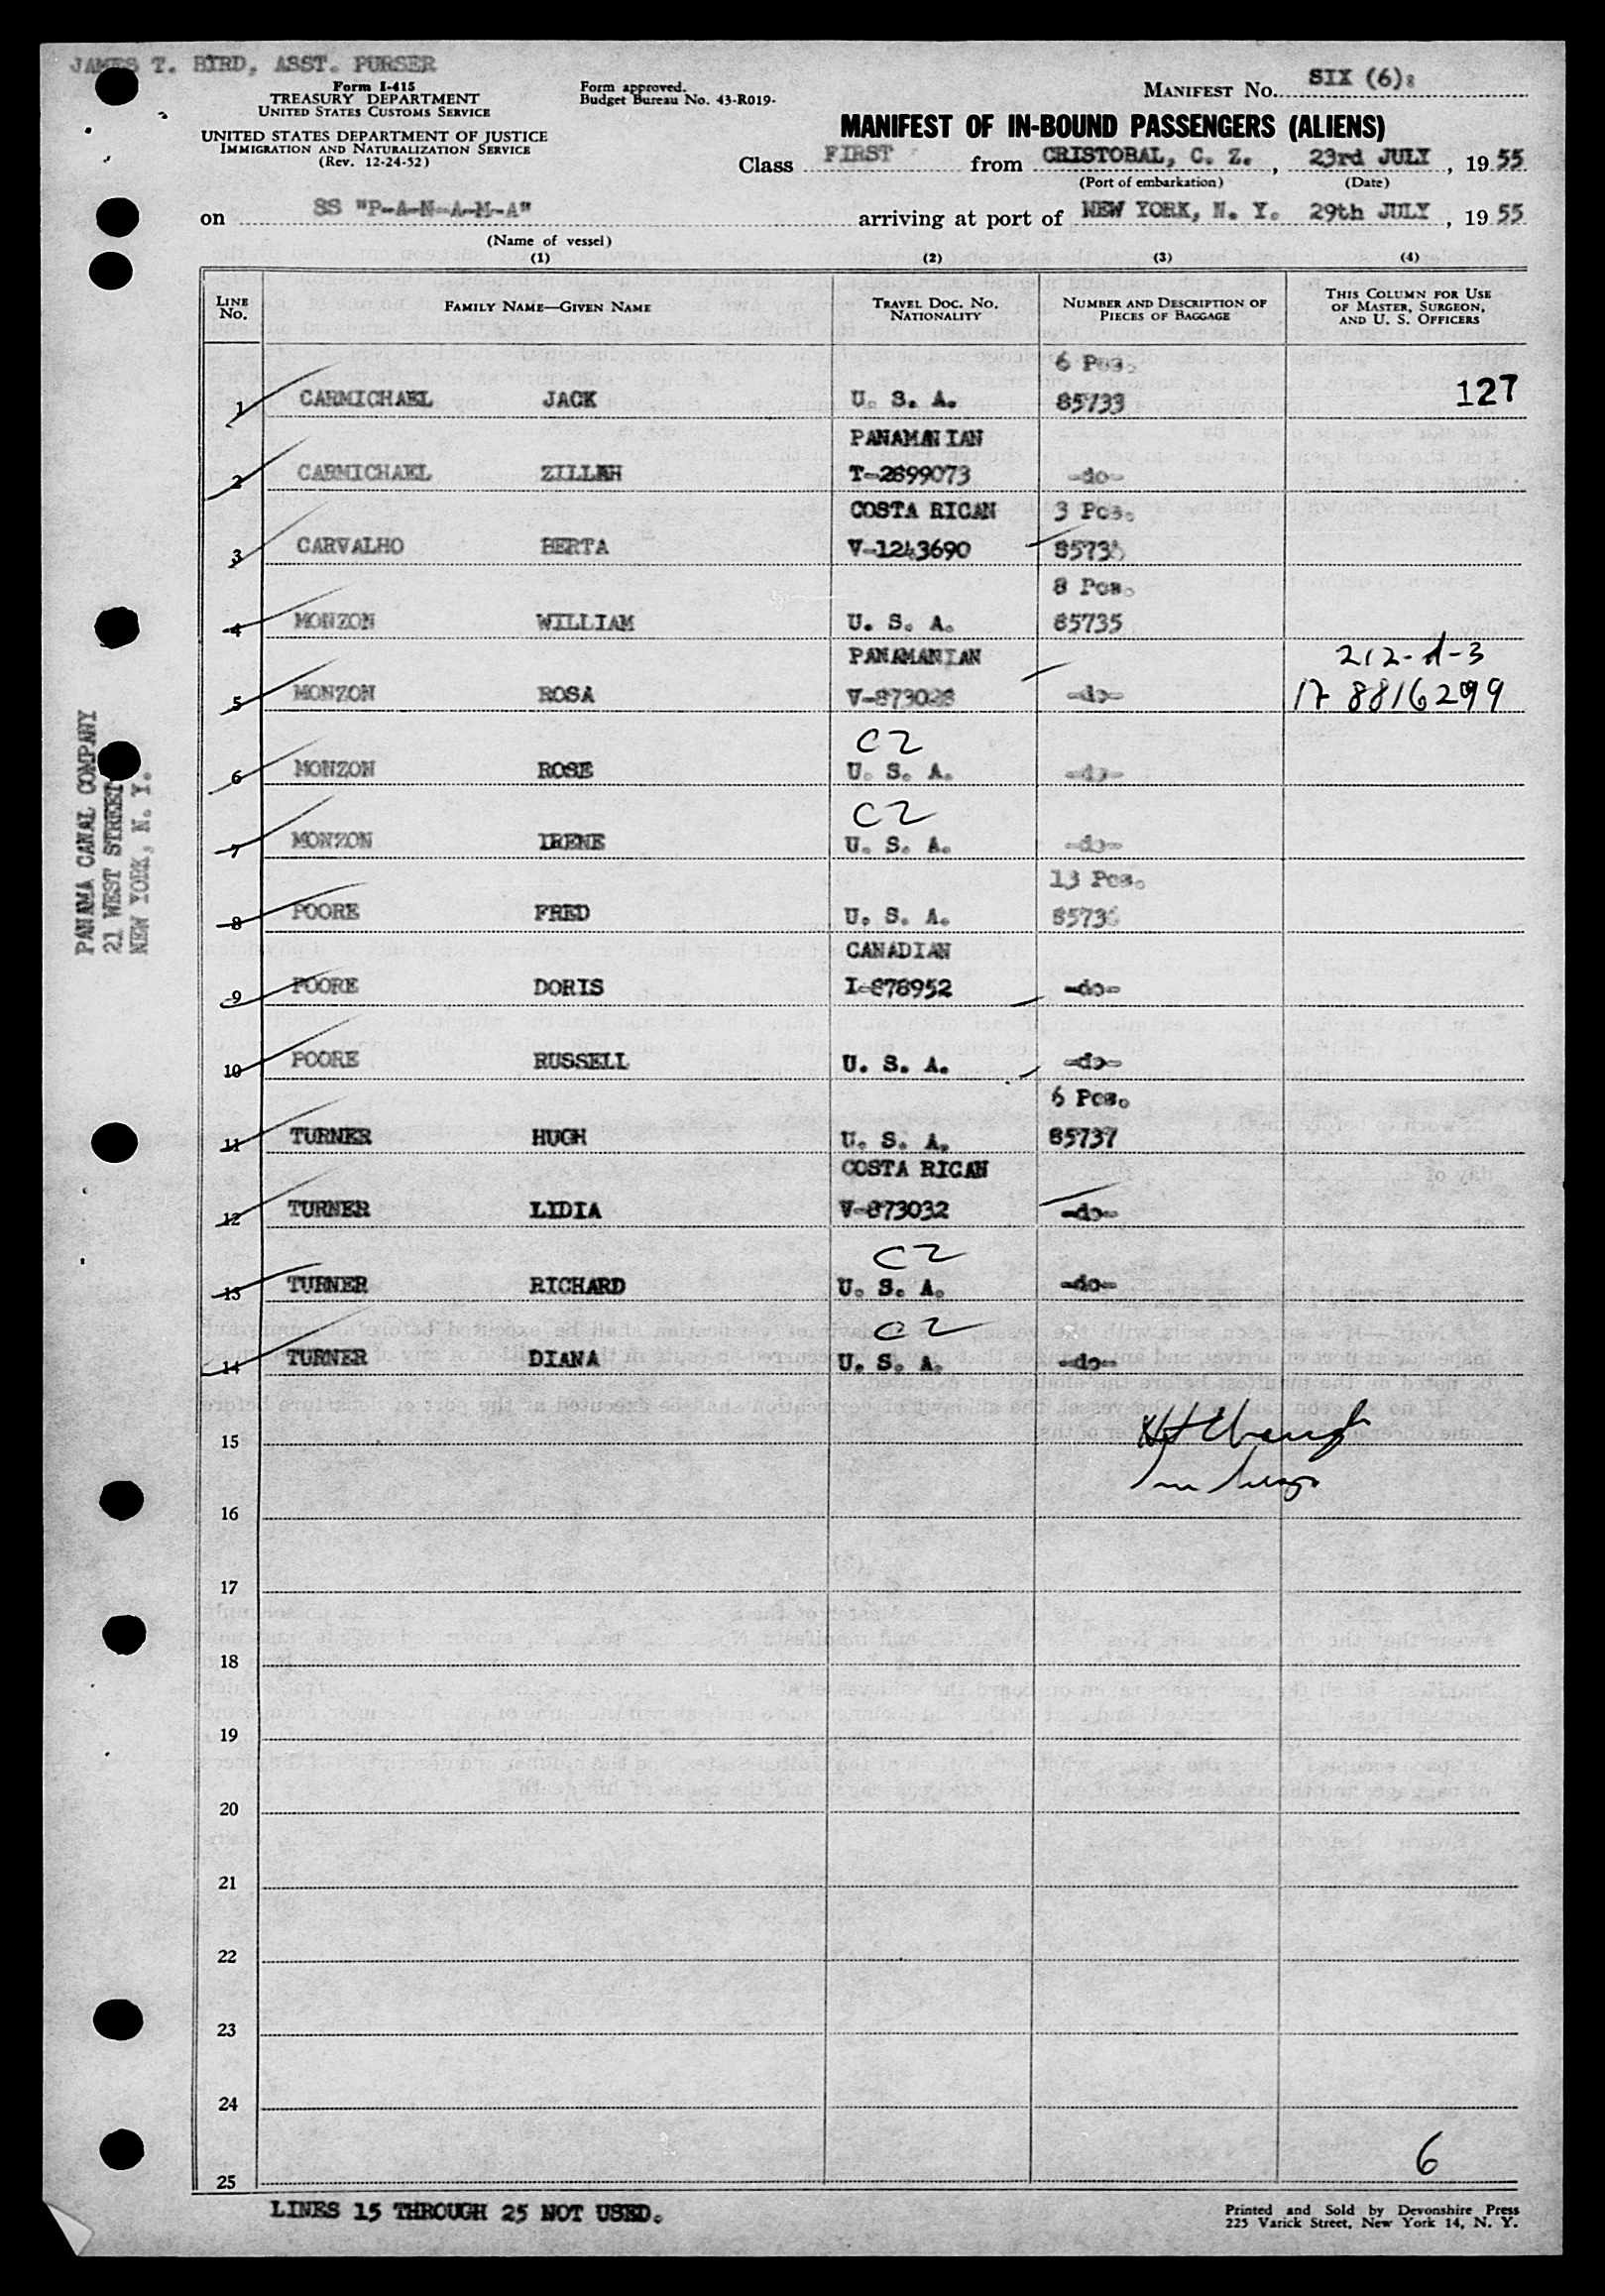 JAMES T. BIRD, ASST. PURSER
Form I-415
TREASURY DEPARTMENT
UNITED STATES CUSTOMS SERVICE
UNITED STATES DEPARTMENT OF JUSTICE
IMMIGRATION AND NATURALIZATION SERVICE
(Rev. 12-24-52)
Form approved.
Budget Bureau No. 43-R019.
MANIFEST NO. SIX (6):
MANIFEST OF IN-BOUND PASSENGERS (ALIENS)
Class FIRST from CRISTOBAL, C. Z. , 23rd JULY , 19 55
(Port of embarkation) (Date)
on SS "P-A-N-A-M-A" arriving at port of NEW YORK, N. Y. 29th JULY , 19 55
(Name of vessel)
(1) (2) (3) (4)
LINE NO. FAMILY NAME—GIVEN NAME TRAVEL DOC. NO. NATIONALITY NUMBER AND DESCRIPTION OF PIECES OF BAGGAGE THIS COLUMN FOR USE OF MASTER, SURGEON, AND U. S. OFFICERS
6 Pcs.
1 CARMICHAEL JACK U. S. A. 85733 127
PANAMANIAN
2 CARMICHAEL ZILLAH T-2899073 -do-
COSTA RICAN 3 Pcs.
3 CARVALHO BERTA V-1243690
8 Pcs.
4 MONZON WILLIAM U. S. A. 85735
PANAMANIAN 212-d-3
5 MONZON ROSA -do- 17 8816299
CZ
6 MONZON ROSE U. S. A. -do-
CZ
7 MONZON IRENE U. S. A. -do-
13 Pcs.
8 POORE FRED U. S. A. 85736
CANADIAN
9 POORE DORIS I-878952 -do-
10 POORE RUSSELL U. S. A. -do-
6 Pcs.
11 TURNER HUGH U. S. A. 85737
COSTA RICAN
12 TURNER LIDIA V-873032 -do-
CZ
13 TURNER RICHARD U. S. A. -do-
CZ
14 TURNER DIANA U. S. A. -do-
15
16
17
18
19
20
21
22
23
24
25
6
LINES 15 THROUGH 25 NOT USED.
Printed and Sold by Devonshire Press
225 Varick Street, New York 14, N. Y.
PANAMA CANAL COMPANY
21 WEST STREET
NEW YORK, N. Y.